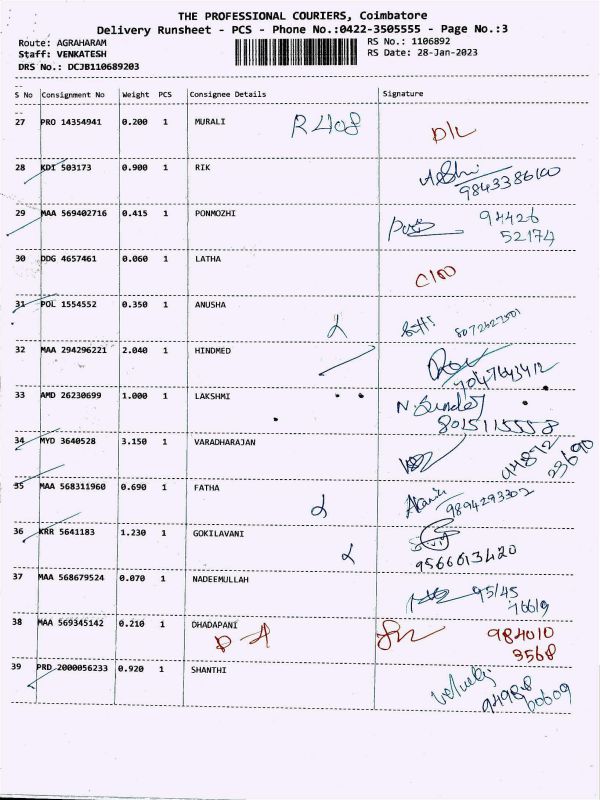 THE PROFESSIONAL COURIERS, Coimbatore
Delivery Runsheet - PCS - Phone No.:0422-3505555 - Page No.:3
Route: AGRAHARAM RS No.: 1106892
Staff: VENKATESH RS Date: 28-Jan-2023
DRS No.: DCJB110689203
S No Consignment No Weight PCS Consignee Details Signature
27 PRO 14354941 0.200 1 MURALI R408 D/L
28 KDI 503173 0.900 1 RIK
9843386100
29 MAA 569402716 0.415 1 PONMOZHI 94426
52174
30 DDG 4657461 0.060 1 LATHA
31 POL 1554552 0.350 1 ANUSHA
32 MAA 294296221 2.040 1 HINDMED
33 AMD 26230699 1.000 1 LAKSHMI
8015115558
34 MYD 3640528 3.150 1 VARADHARAJAN 94872
23690
35 MAA 568311960 0.690 1 FATHA
9894293302
36 KRR 5641183 1.230 1 GOKILAVANI
9566613420
37 MAA 568679524 0.070 1 NADEEMULLAH 95/45
76619
38 MAA 569345142 0.210 1 DHADAPANI 984010
3568
39 PRD 2000056233 0.920 1 SHANTHI
94988
60609